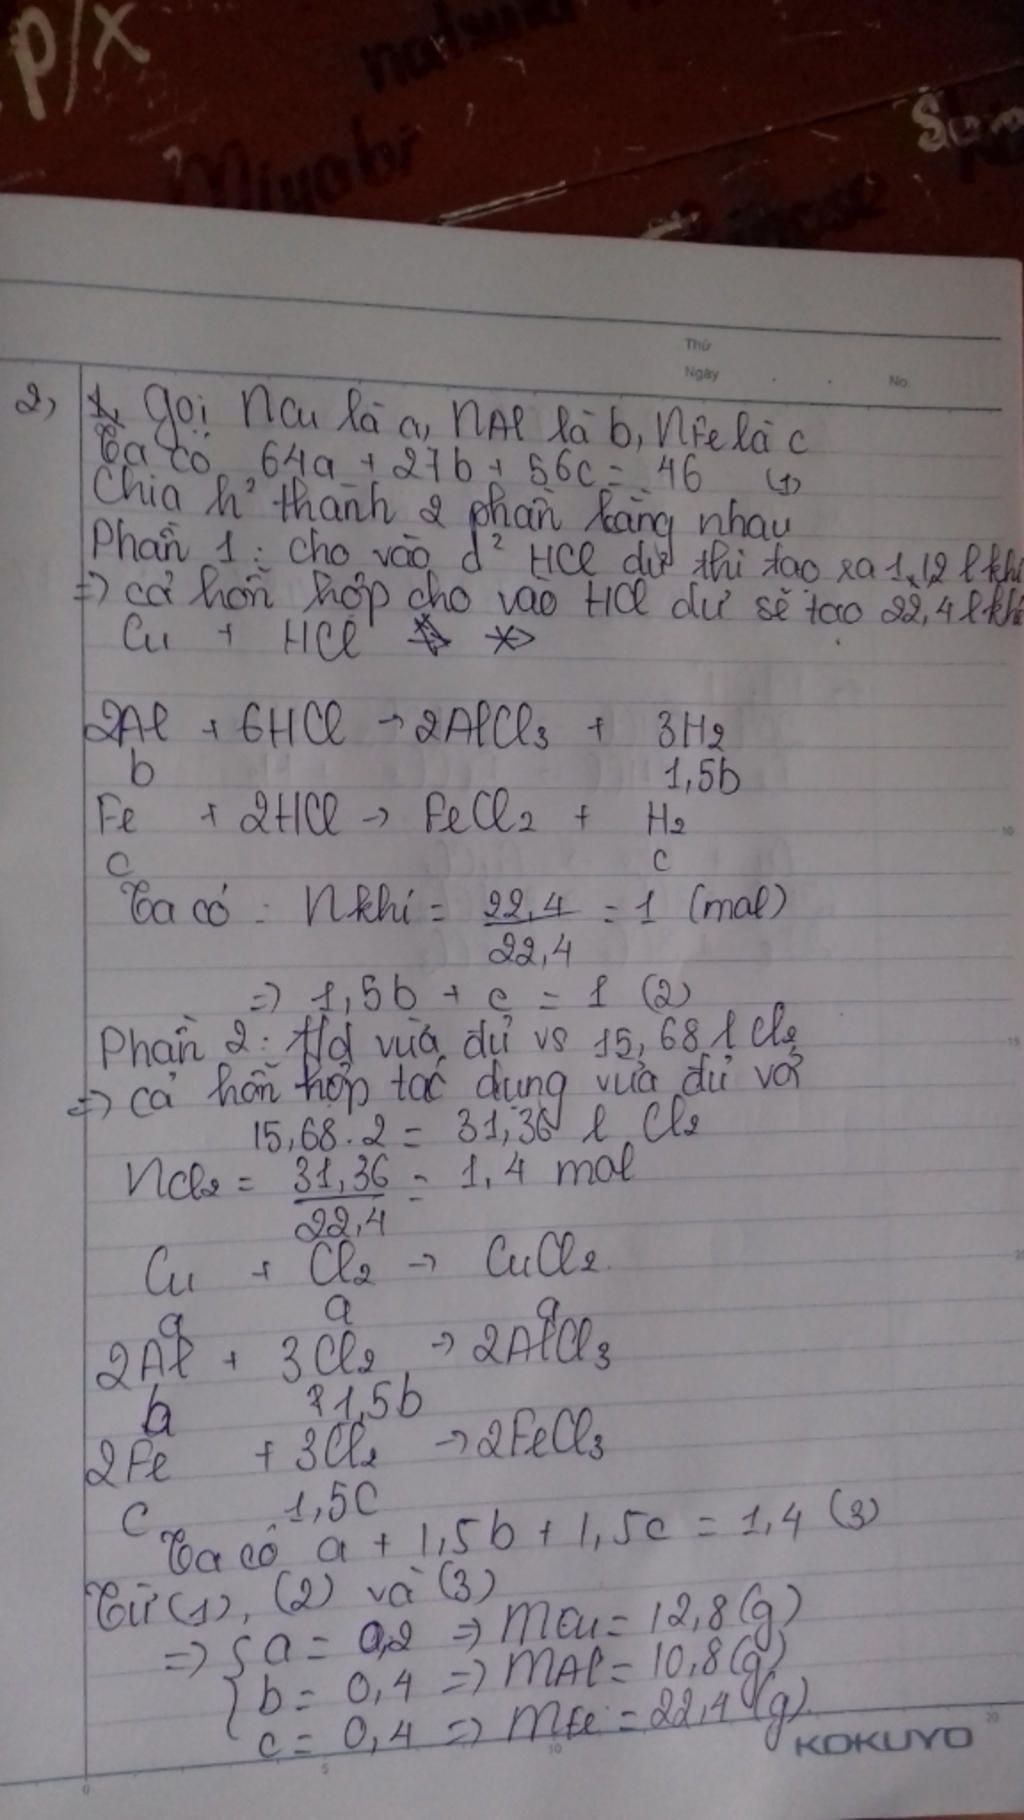 p/x
Miyabi
Thứ
Ngày . . No.
2, Gọi nCu là a, nAl là b, nFe là c
Ta có 64a + 27b + 56c = 46 (1)
Chia h² thành 2 phần bằng nhau
Phần 1 : cho vào d² HCl dư thì tạo ra 11,12 l khí
=> cả hỗn hợp cho vào HCl dư sẽ tạo 22,4 l khí
Cu + HCl
2Al + 6HCl → 2AlCl₃ + 3H₂
b 1,5b
Fe + 2HCl → FeCl₂ + H₂
c c
Ta có : nkhí = 22,4/22,4 = 1 (mol)
=> 1,5b + c = 1 (2)
Phần 2 : t/d vừa đủ vs 15,68 l Cl₂
=> cả hỗn hợp tác dụng vừa đủ với
15,68.2 = 31,36 l Cl₂
nCl₂ = 31,36/22,4 = 1,4 mol
Cu + Cl₂ → CuCl₂
a a a
2Al + 3Cl₂ → 2AlCl₃
b 1,5b
2Fe + 3Cl₂ → 2FeCl₃
c 1,5c
Ta có a + 1,5b + 1,5c = 1,4 (3)
Từ (1), (2) và (3)
=> { a = 0,2 => mCu = 12,8(g)
b = 0,4 => mAl = 10,8(g)
c = 0,4 => mFe = 22,4(g)
KOKUYO
0 5 10 20